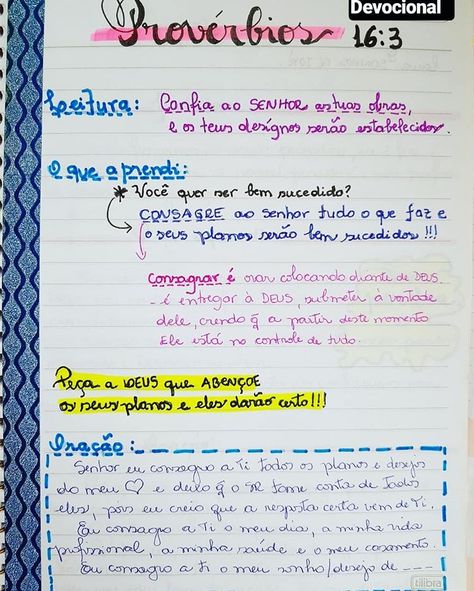 Devocional
Provérbios 16:3
Leitura: Confia ao SENHOR as tuas obras,
e os teus desígnos serão estabelecidos.
O que aprendi:
* Você quer ser bem sucedido?
CONSAGRE ao senhor tudo o que faz e
o seus planos serão bem sucedidos!!!
Consagrar é orar colocando diante de DEUS
- é entregar à DEUS, submeter à vontade
dele, crendo q̃ a partir deste momento
Ele está no controle de tudo.
Peça a DEUS que ABENÇOE
os seus planos e eles darão certo!!!
Oração:
Senhor eu consagro a Ti todos os planos e desejos
do meu ♡ e deixo q̃ o SR tome conta de todos
eles, pois eu creio que a resposta certa vem de Ti.
Eu consagro a Ti o meu dia, a minha vida
profissional, a minha saúde e o meu casamento.
Eu consagro a ti o meu sonho/desejo de ----
tilibra